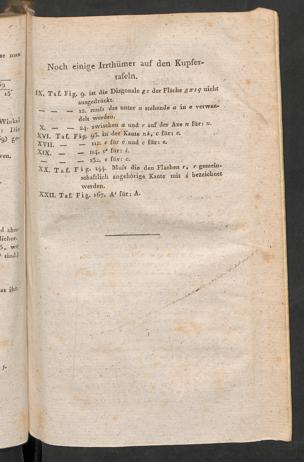 Noch einige Irrthümer auf den Kupfer-
tafeln.
IX. Taf. Fig. 9. ist die Diagonale gz der Fläche gxzq nicht
ausgedrückt.
— — — 12. muſs das unter a stehende a in e verwan-
delt werden.
X. — — 24. zwischen a und r auf der Axe n für: u.
XVI. Taf. Fig. 95. in der Kante nk, c für: e.
XVII. — — 112. e für c und c für: e.
XIX. — — 114. c² für: i.
— — — 132. s für: c.
XX. Taf. Fig. 144. Muſs die den Flächen r, r gemein-
schaftlich angehörige Kante mit i bezeichnet
werden.
XXII. Taf. Fig. 167. A¹ für: A.